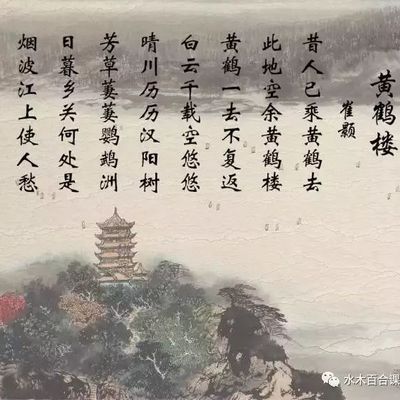 黄鹤楼
崔颢
昔人已乘黄鹤去
此地空余黄鹤楼
黄鹤一去不复返
白云千载空悠悠
晴川历历汉阳树
芳草萋萋鹦鹉洲
日暮乡关何处是
烟波江上使人愁
水木百合课